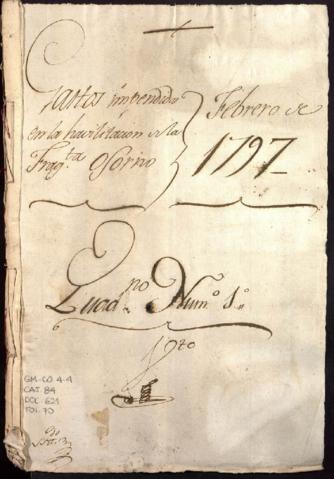 Gastos impendidos
en la havilitacion de la
Frag.ta Osorno
Febrero de
1797
Quad.no Num.o 1.o
GM-CO 4-4
CAT. 84
DOC. 621
FOL. 70